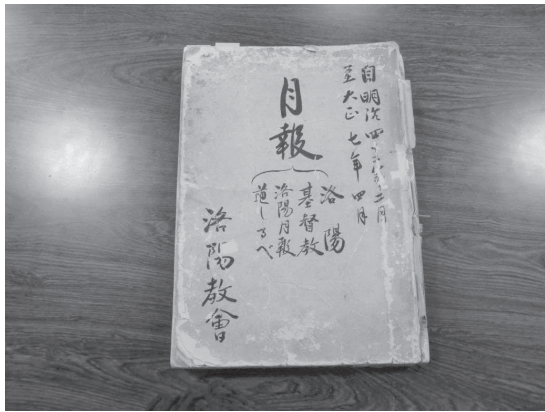 自明治四十 年二月
至大正七年四月
月報
洛陽
基督教
洛陽月報
道しるべ
洛陽教會